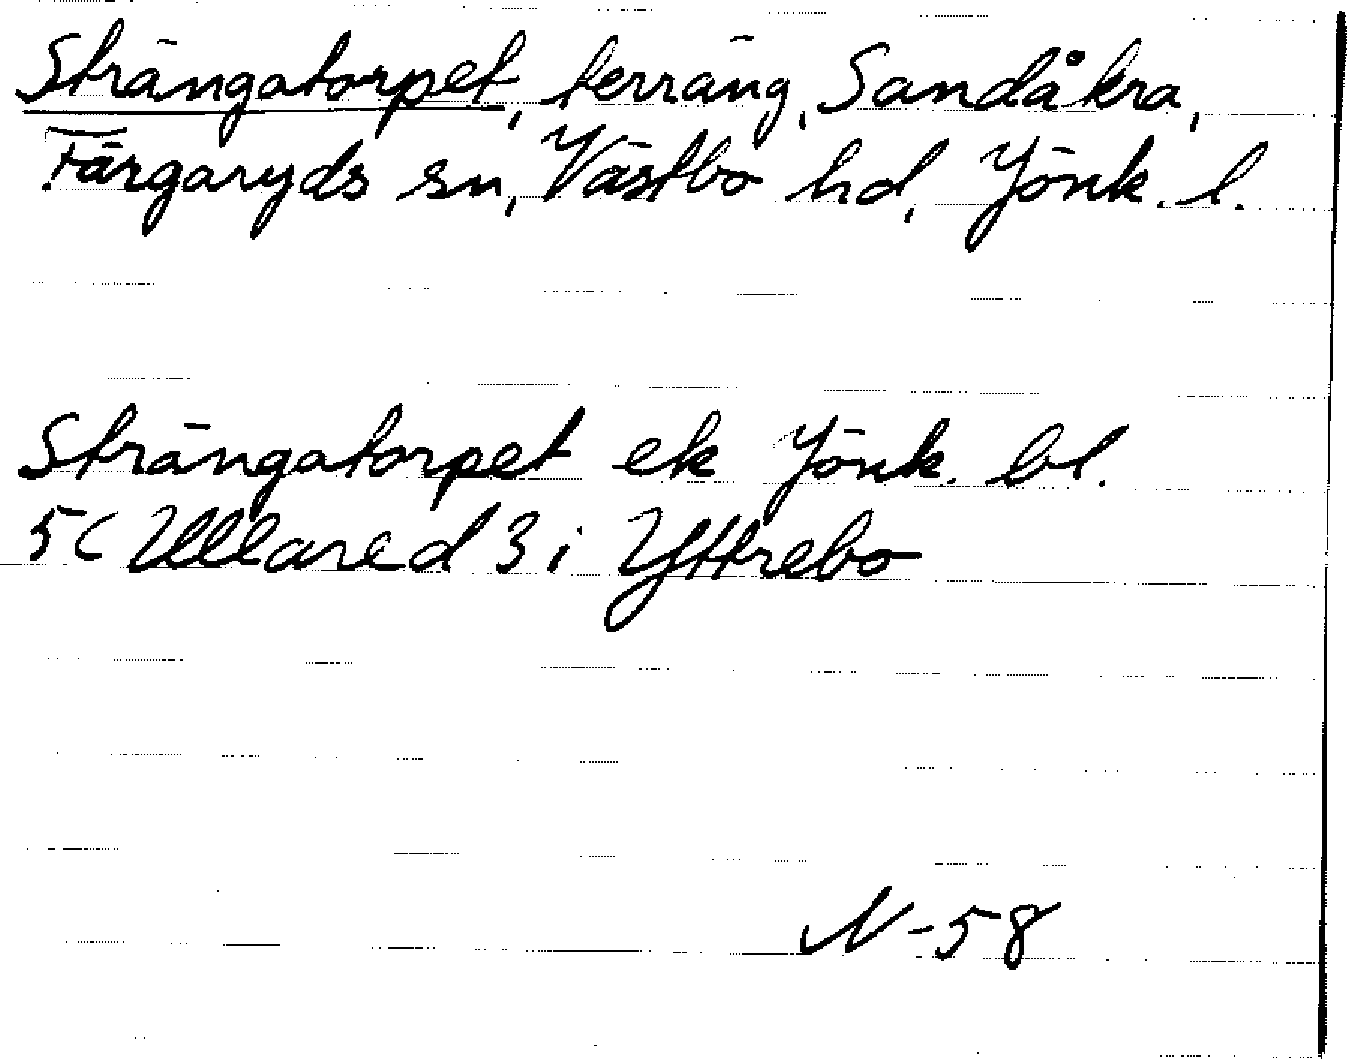 Strängatorpet, terräng, Sandåkra,
Färgaryds sn, Västbo hd, Jönk. l.
Strängatorpet ek Jönk. bl.
5C Ullared 3i Yttrebo
N-58